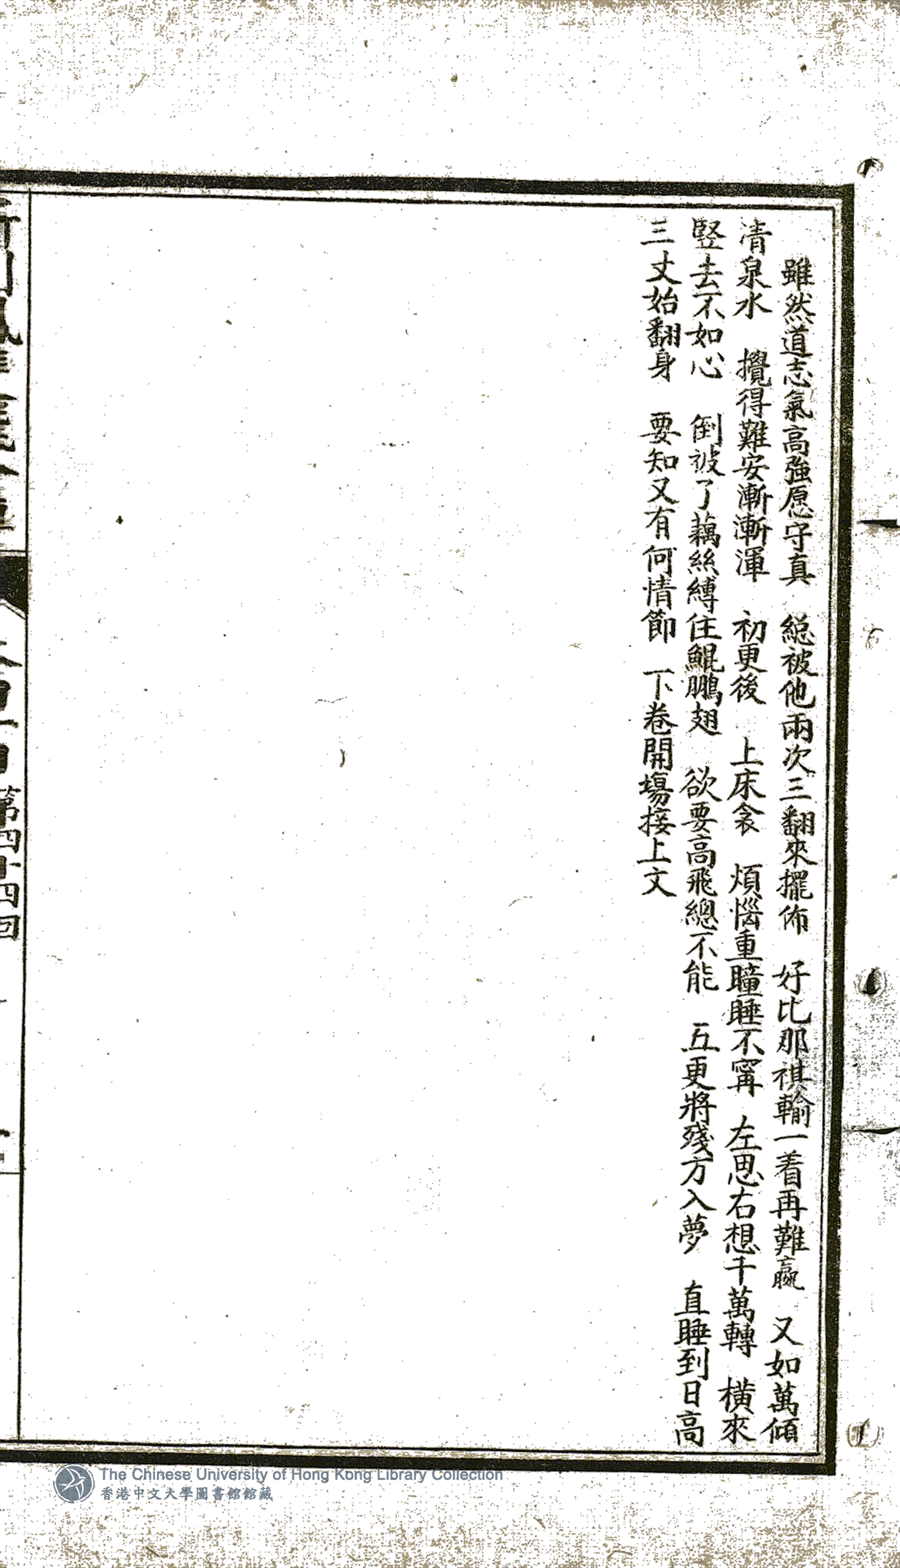 雖然道志氣高強愿守真　總被他兩次三翻來擺佈　好比那祺輸一着再難贏　又如萬傾
清泉水　攪得難安漸漸渾　初更後　上床衾　煩惱重瞳睡不寗　左思右想千萬轉　橫來
竪去不如心　倒被了藕絲縛住鯤鵬翅　欲要高飛總不能　五更將殘方入夢　直睡到日高
三丈始翻身　要知又有何情節　下卷開塲接上文
第四十四回
The Chinese University of Hong Kong Library Collection
香港中文大學圖書館館藏